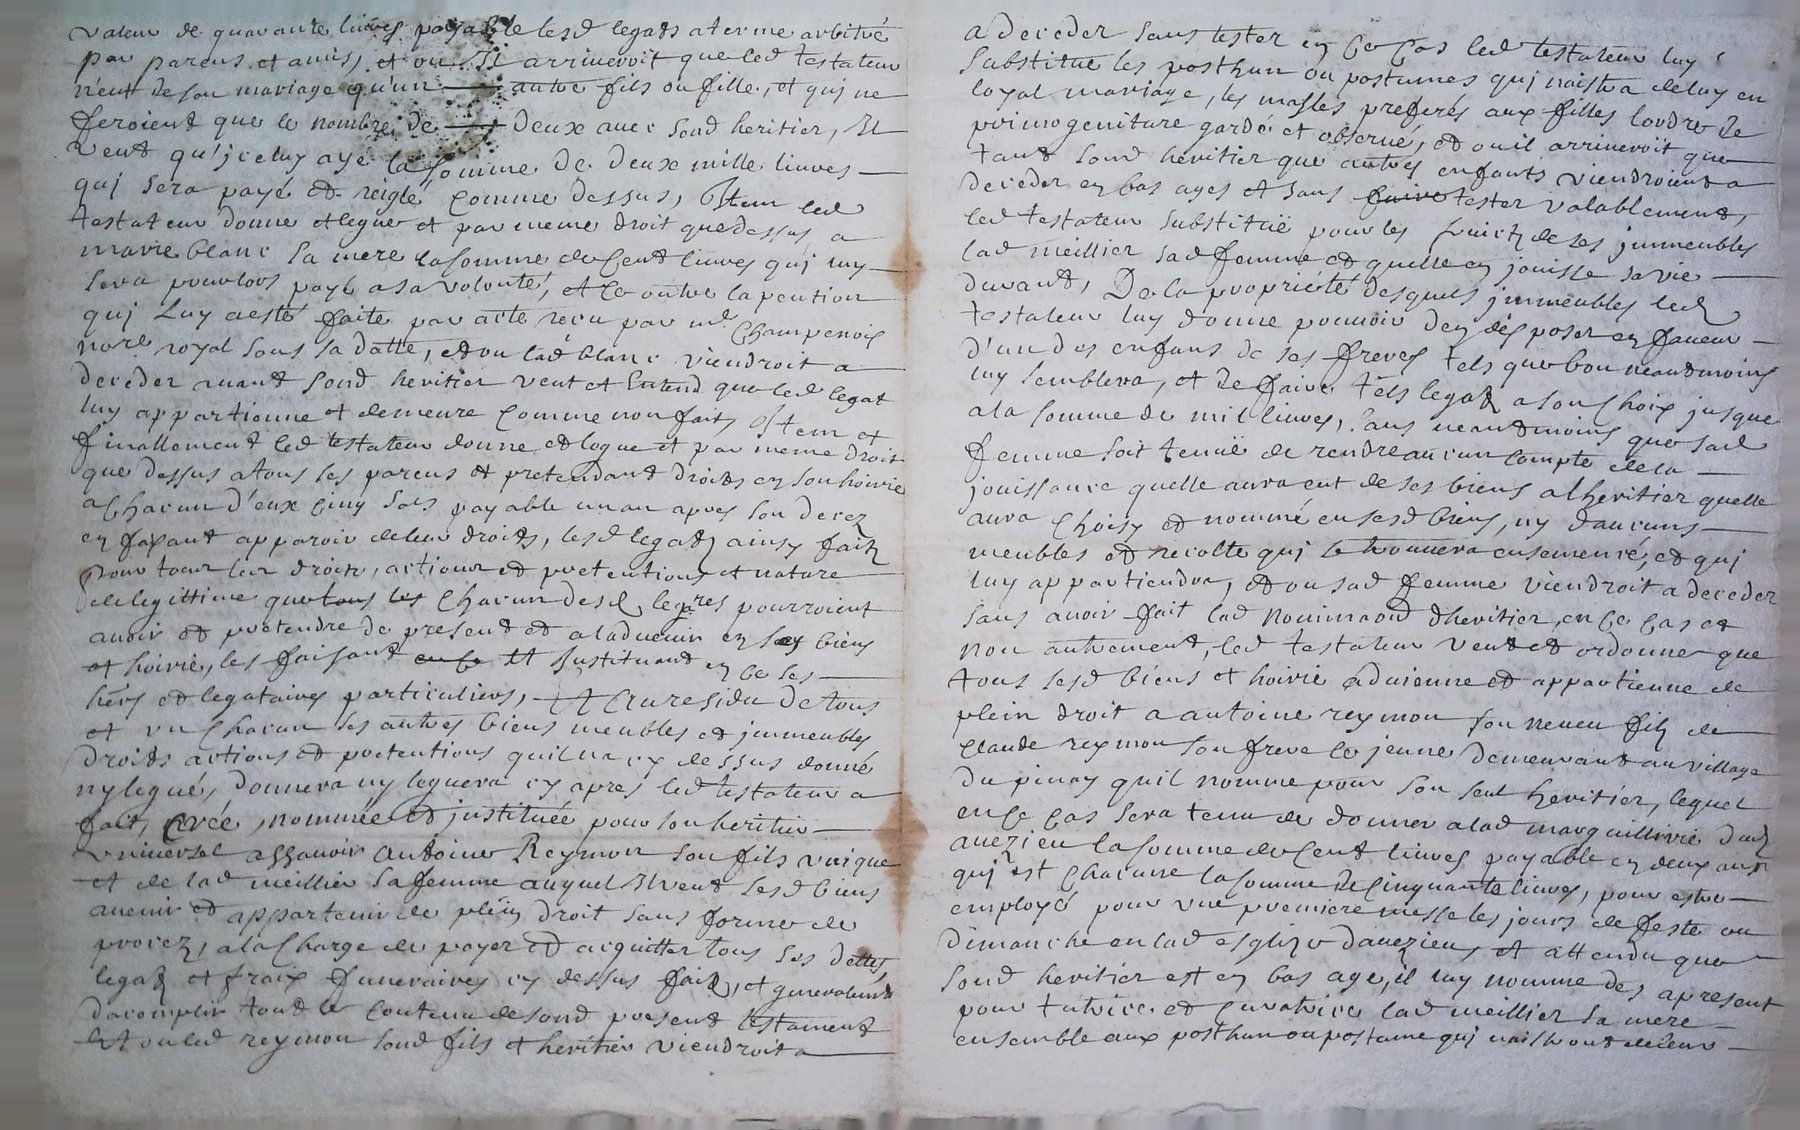 valeur de quarante livres payable lesd legats a terme arbitré
par parens et amis, et ou Il arriveroit que led testateur
n'eut de son mariage qu'un autre fils ou fille, et qui ne
feroient que le nombre de deux avec sond heritier, Il
veut qu'jceluy aye la somme de deux mille livres
qui sera payé et reiglé comme dessus, Item led
testateur donne et legue et par meme droit que dessus a
marie blanc sa mere la somme de Cent livres qui luy
sera pourlors payé a sa volonté, et ce outre la pention
qui Luy a esté faite par acte reçu par me Champenois
nore royal sous sa datte, et ou lad blanc viendroit a
deceder avant sond heritier veut et Entend que led legat
luy appartienne et demeure comme non fait, Item et
finallement led testateur donne et legue et par meme droit
que dessus a tous les parens et pretendant droits en son hoirie
a Chacun d'eux cinq sols payable un an apres son decez
en fesant apparoir de leur droits, lesd legatz ainsy faitz
pour tous leur droits, actions et pretentions et nature
de legittime que tous les Chacun desd legres pourroient
avoir et pretendre de present et a ladvenir en ses biens
et hoirie, les faisant en ce et Instituant en ce ses
hers et legataires particuliers, Et Au residu de tous
et un chacun ses autres biens meubles et jmmeubles
droits actions et pretentions quil na cy dessus donné
ny legué, donnera ny leguera cy apres led testateur a
fait, créé, nommée et jnstituée pour son heritier
universel assavoir Antoine Reymon son fils unique
et de lad meillier sa femme auquel Il veut sesd biens
avenir et appartenir de plein droit sans forme de
procez, a la Charge de payer et acquitter tous ses dettes,
legatz et fraix funeraires cy dessus faitz, et generalement
dacomplir tout le contenu de sond present testament
Et ou led reymon sond fils et heritier viendroit a
a deceder sans tester en ce Cas led testateur luy
substitue les posthun ou postumes qui naistra de luy en
loyal mariage, les masles preferés aux filles lordre de
primogeniture gardé et observé, et ou il arriveroit que
tant sond heritier que autres enfants viendroient a
deceder en bas ages et sans faire tester valablement,
led testateur substituë pour les fruitz de ses jmmeubles
lad meillier sad femme et quelle en jouisse sa vie
durant, De la propriété desquels jmmeubles led
testateur luy donne pouvoir den disposer en faveur
d'un des enfans de ses freres tels que bon neandmoins
luy semblera, et de faire tels legatz a son choix jusque
a la somme de mil livres, sans neantmoins que sad
femme soit tenuë de rendre aucun compte de la
jouissance quelle aura eut de ses biens a lheritier quelle
aura Choisy et nommé en sesd biens, ny daucuns
meubles et recolte qui se trouvera ensemencé, et qui
luy appartiendra, et ou sad femme viendroit a deceder
sans avoir fait lad nominaon dheritier, en ce cas et
non autrement, led testateur veut et ordonne que
tous sesd biens et hoirie advienne et appartienne de
plein droit a antoine reymon son neveu filz de
Claude reymon son frere le jeune demeurant au village
du pinay quil nomme pour son seul heritier, lequel
en ce cas sera tenu de donner a lad marguillirie dud
avezieu la somme de Cent livres payable en deux ans
qui est chacune la somme de cinquante livres, pour estre
employé pour une premiere messe les jours de feste ou
dimanche en lad esglize davezieu, et attendu que
sond heritier est en bas age, il luy nomme des apresent
pour tutrice et Curatrice lad meillier sa mere
ensemble aux posthun ou postume qui naistront de leur